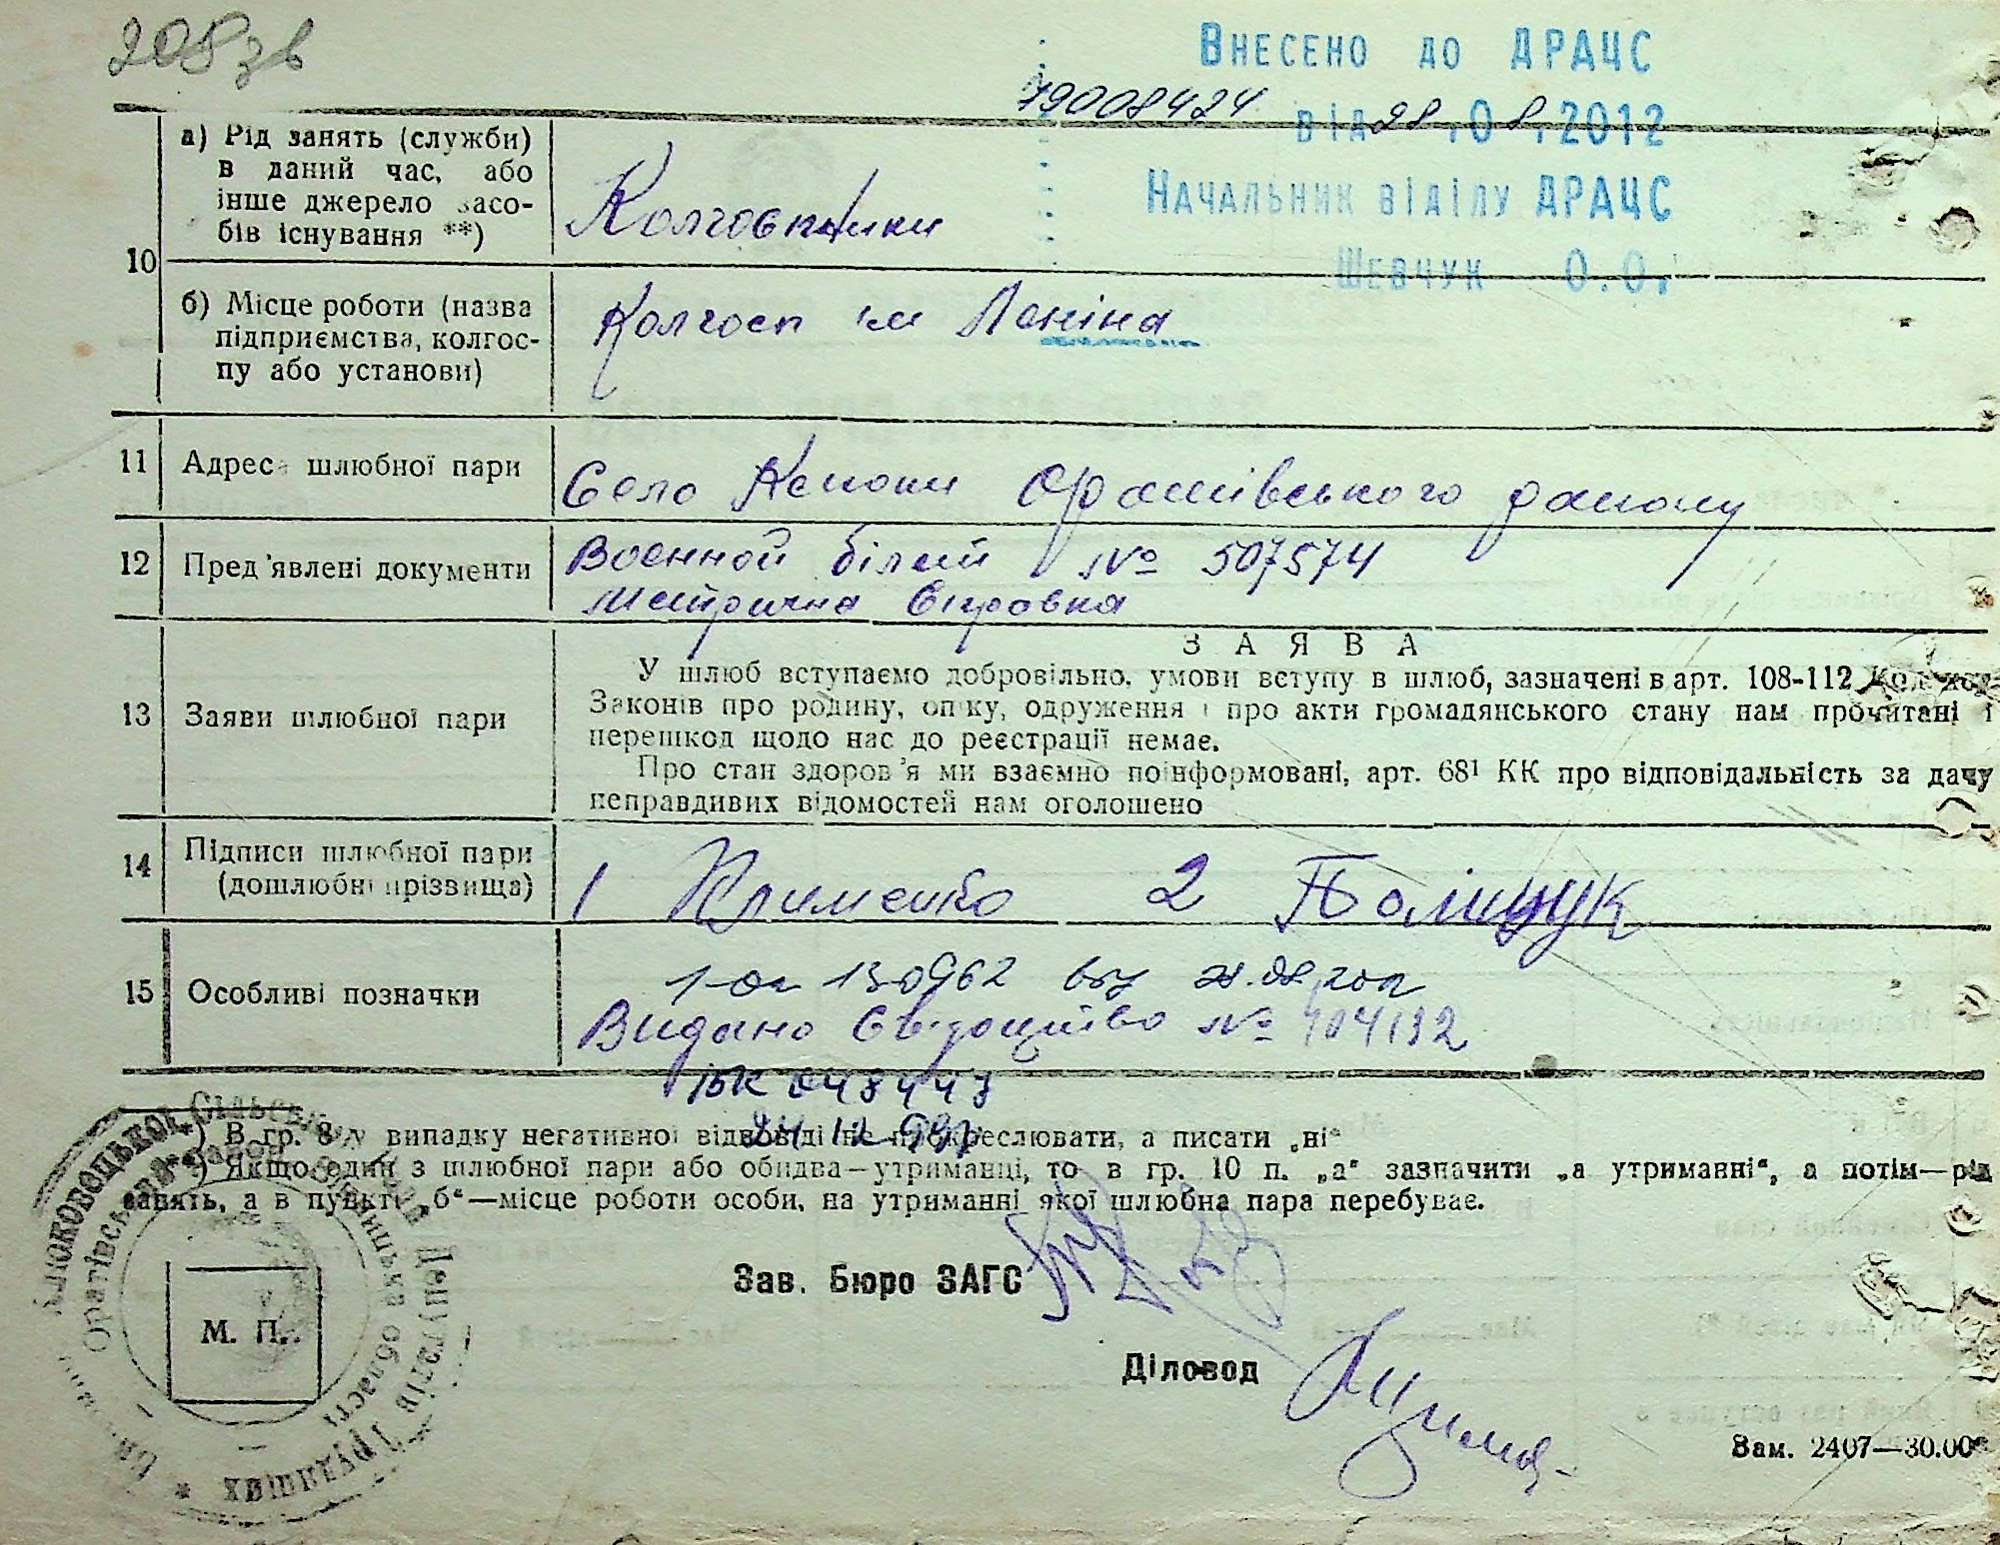 208 зв
Внесено до ДРАЦС
79008424 від 28.08.2012
Начальник відділу ДРАЦС
Шевчук О.О.
10
а) Рід занять (служби)
в даний час, або
інше джерело засо-
бів існування **)
Колгоспники
б) Місце роботи (назва
підприємства, колгос-
пу або установи)
Колгосп ім Леніна
11 Адреса шлюбної пари
Село Оратівського району
12 Пред'явлені документи
Военной білет № 507574
Метрична Справка
13 Заяви шлюбної пари
ЗАЯВА
У шлюб вступаємо добровільно, умови вступу в шлюб, зазначені в арт. 108-112 Кодексу
Законів про родину, опіку, одруження і про акти громадянського стану нам прочитані і
перешкод щодо нас до реєстрації немає.
Про стан здоров'я ми взаємно поінформовані, арт. 68¹ КК про відповідальність за дачу
неправдивих відомостей нам оголошено
14 Підписи шлюбної пари
(дошлюбні прізвища)
1 Клименко 2 Поліщук
15 Особливі позначки
130962 від 28.08.2012
Видано Свідоцтво № 404132
24 12
*) В гр. 8 у випадку негативної відповіді не підкреслювати, а писати „ні“
**) Якщо один з шлюбної пари або обидва—утриманці, то в гр. 10 п. „а“ зазначити „а утриманні“, а потім—рід
занять, а в пункті „б“—місце роботи особи, на утриманні якої шлюбна пара перебуває.
Зав. Бюро ЗАГС
М. П.
Діловод
Зам. 2407—30.000
Сільської Ради Депутатів Трудящих
Оратівського району Вінницької області